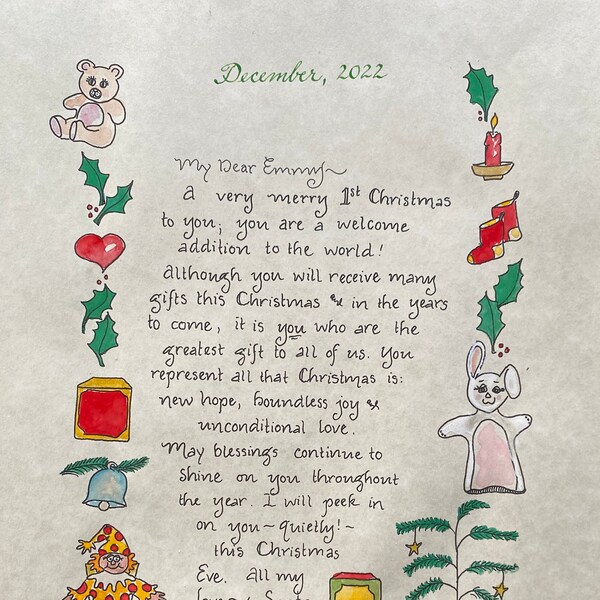 December, 2022
My Dear Emmy~
a very merry 1st Christmas
to you; you are a welcome
addition to the world!
Although you will receive many
gifts this Christmas & in the years
to come, it is you who are the
greatest gift to all of us. You
represent all that Christmas is:
new hope, boundless joy &
unconditional love.
May blessings continue to
shine on you throughout
the year. I will peek in
on you ~ quietly! ~
this Christmas
Eve. All my